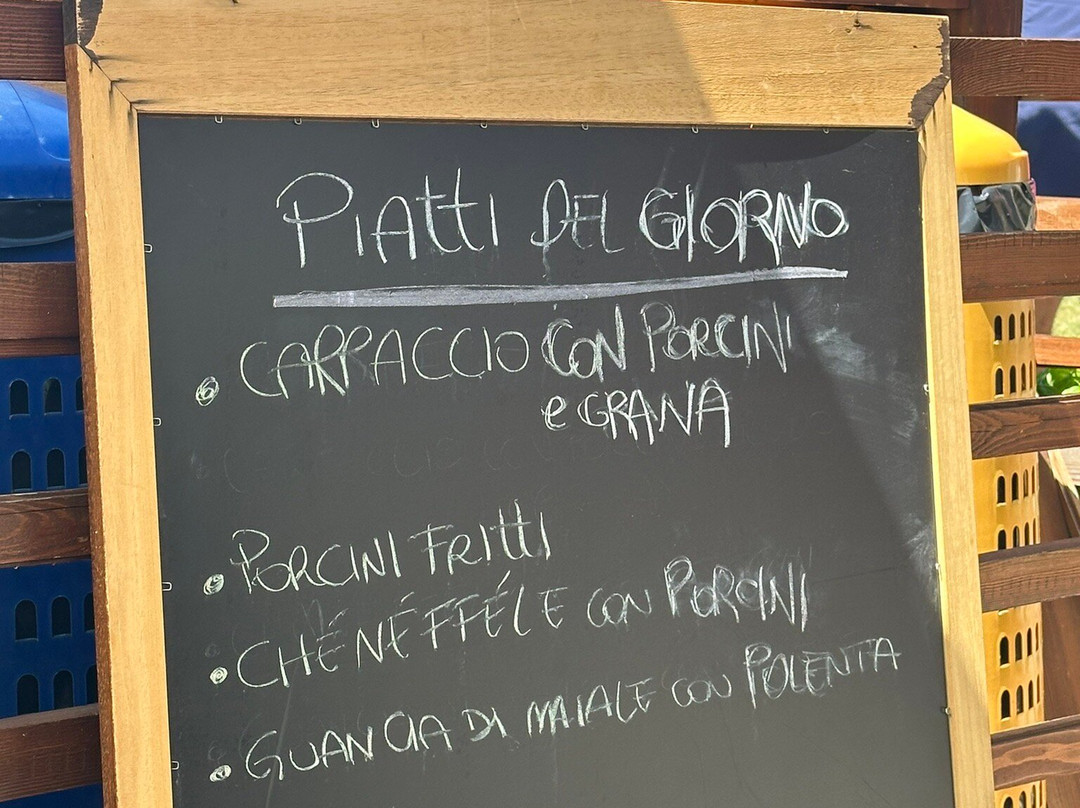 PIATTI DEL GIORNO
• CARPACCIO CON PORCINI
e GRANA
• PORCINI FRITTI
• CHÉNÉFFÉLE CON PORCINI
• GUANCIA DI MAIALE CON POLENTA